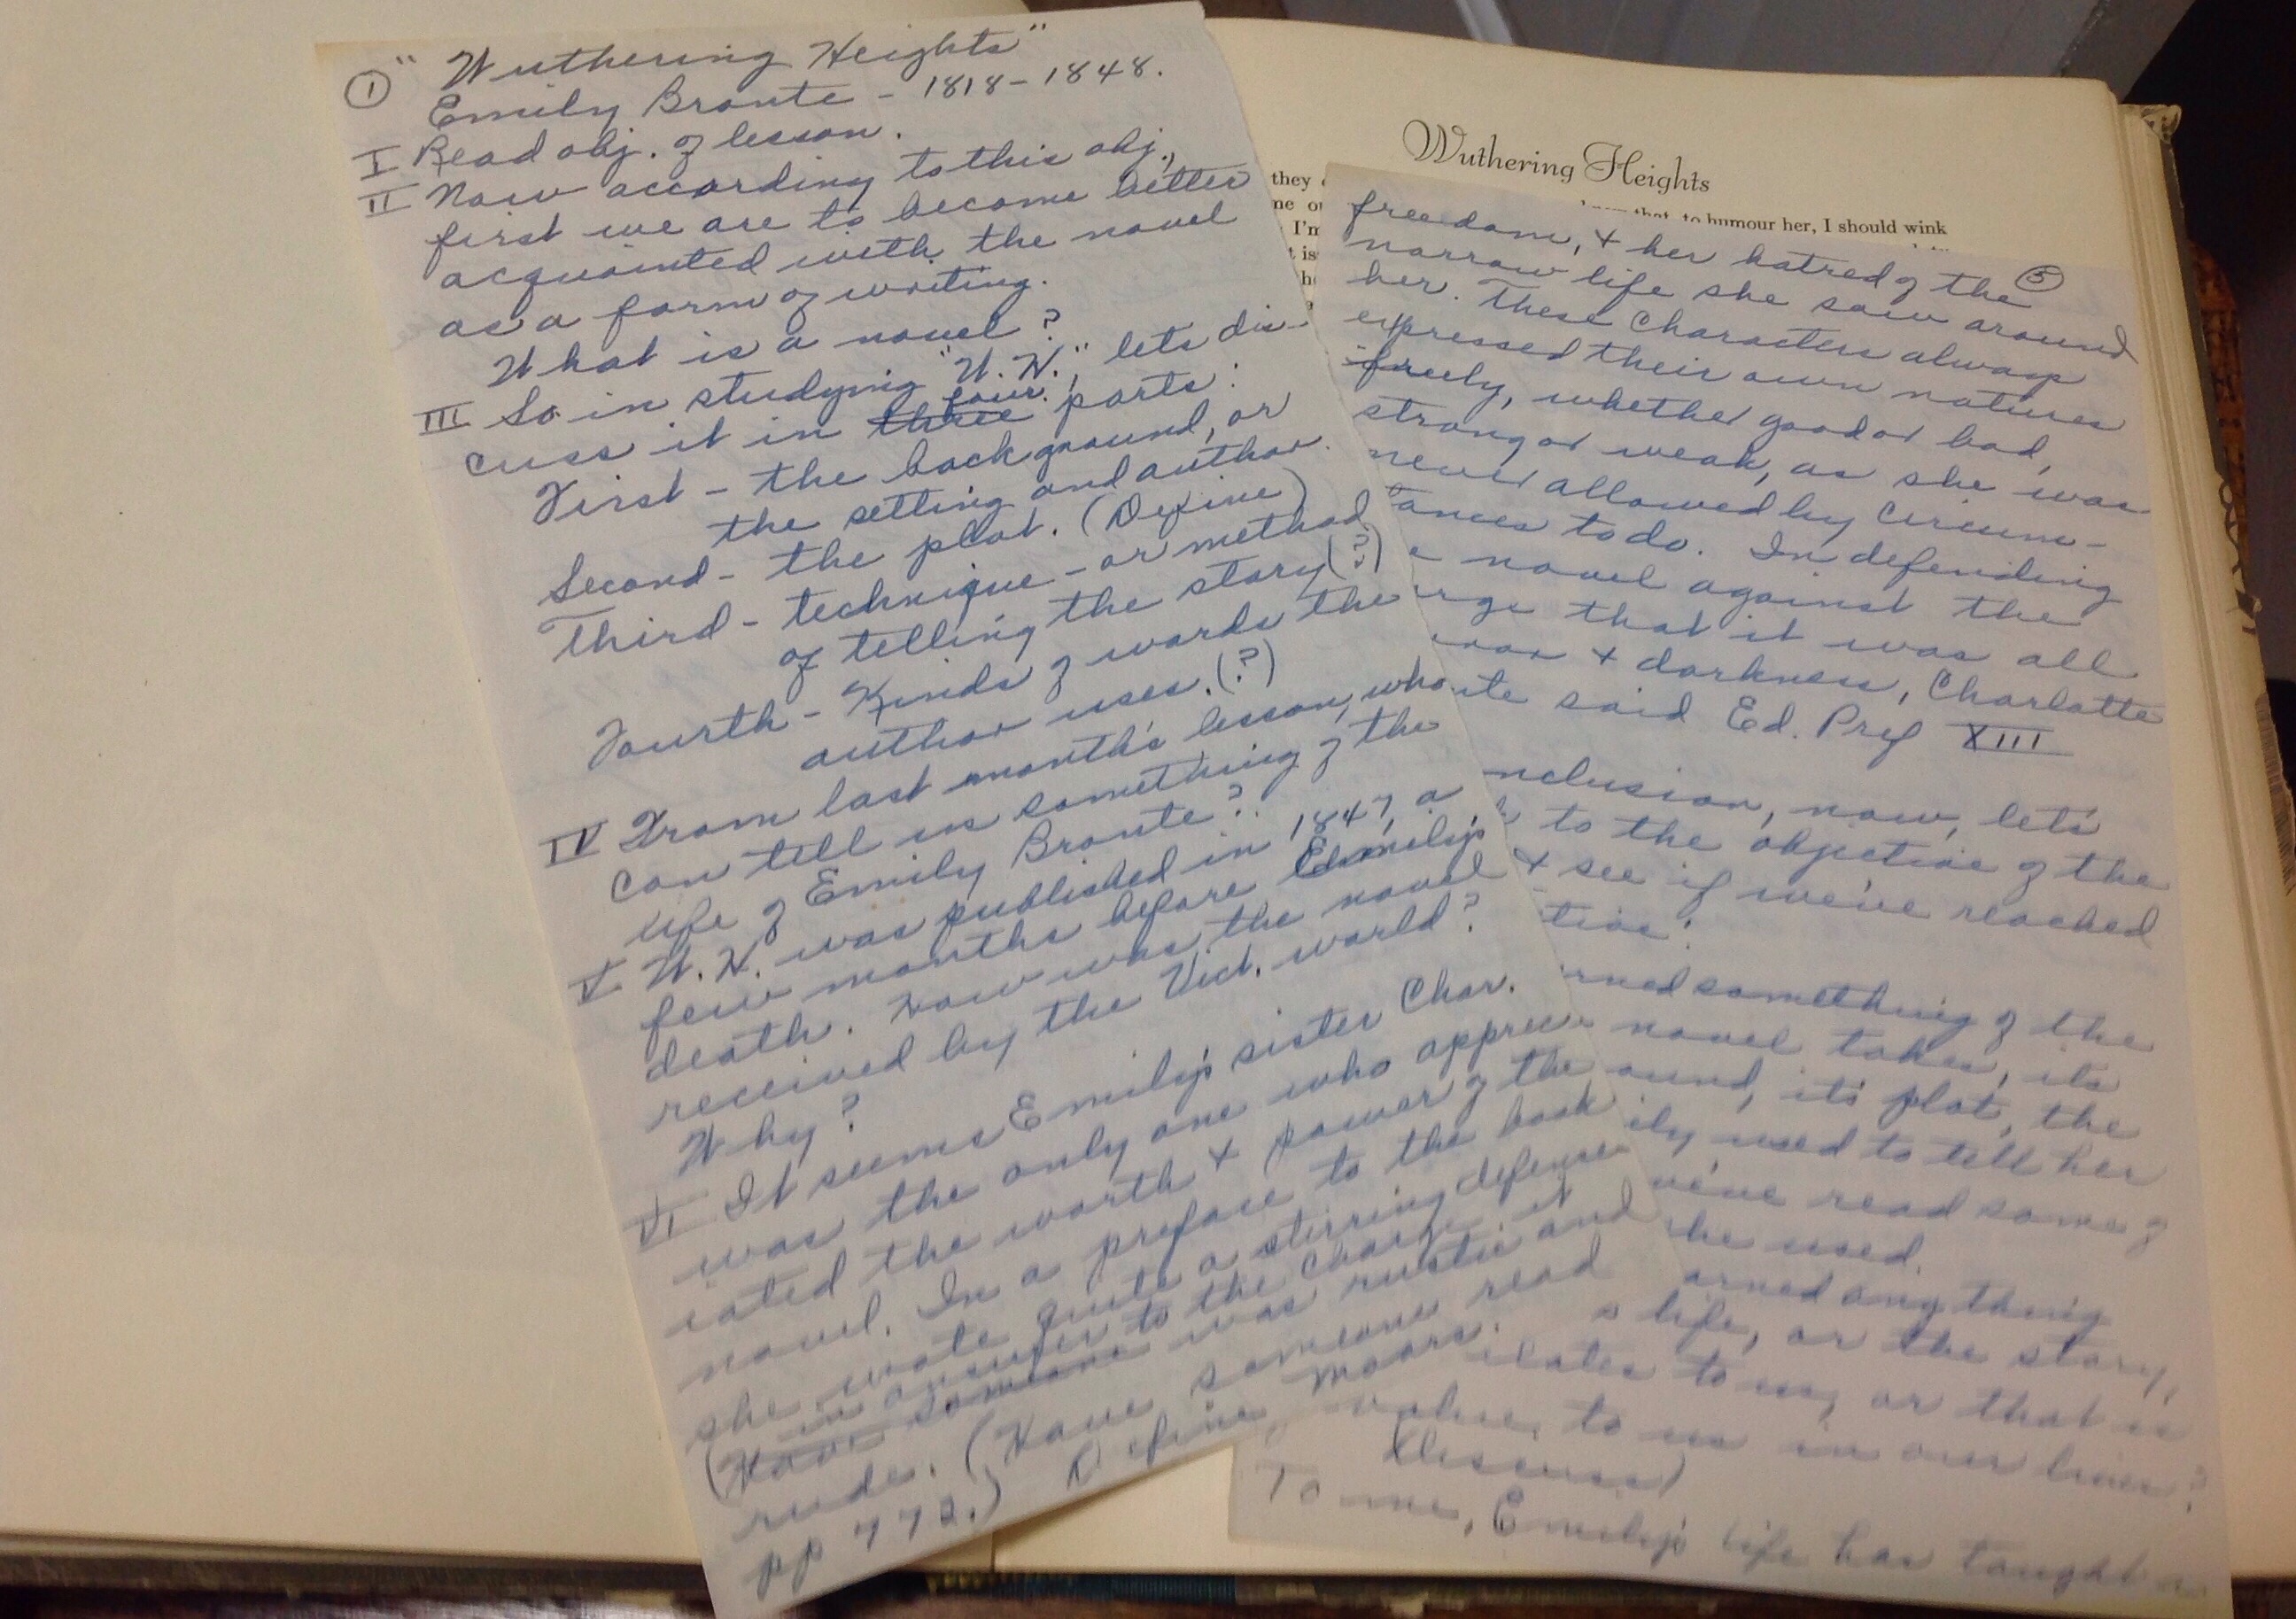 ① "Wuthering Heights"
Emily Bronte - 1818-1848.
I Read obj. of lesson.
II Now according to this obj.,
first we are to become better
acquainted with the novel
as a form of writing.
What is a novel?
III So in studying "W. H.", lets dis-
four
cuss it in three parts:
First - the background, or
the setting and author.
Second - the plot. (Define)
Third - technique - or method
of telling the story (?)
Fourth - Kinds of words the
author uses. (?)
IV From last month's lesson, who
can tell us something of the
life of Emily Bronte?
V W. H. was published in 1847, a
few months before Emily's
death. How was the novel
received by the Vict. world?
Why?
VI It seems Emily's sister Char.
was the only one who apprec-
iated the worth + power of the
novel. In a preface to the book
she wrote quite a stirring defense
in answer to the charge it
(Have someone was rustic and
rude. (Have someone read
pp 772.) Define moors.
Wuthering Heights
they
know that, to humour her, I should wink
ne
I'm
t is
freedom, + her hatred of the ⑤
narrow life she saw around
her. These characters always
expressed their own natures
freely, whether good or bad,
strong or weak, as she was
never allowed by circum-
ances to do. In defending
e novel against the
rge that it was all
ror + darkness, Charlotte
te said Ed. Pref XIII
nclusion, now, let's
to the objective of the
+ see if we've reached
tive:
rned something of the
novel takes, its
ound, it's plot, the
ily used to tell her
we've read some of
she used.
arned any thing
s life, or the story,
elates to us, or that is
value to us in our lives?
Discuss)
To me, Emily's life has taught